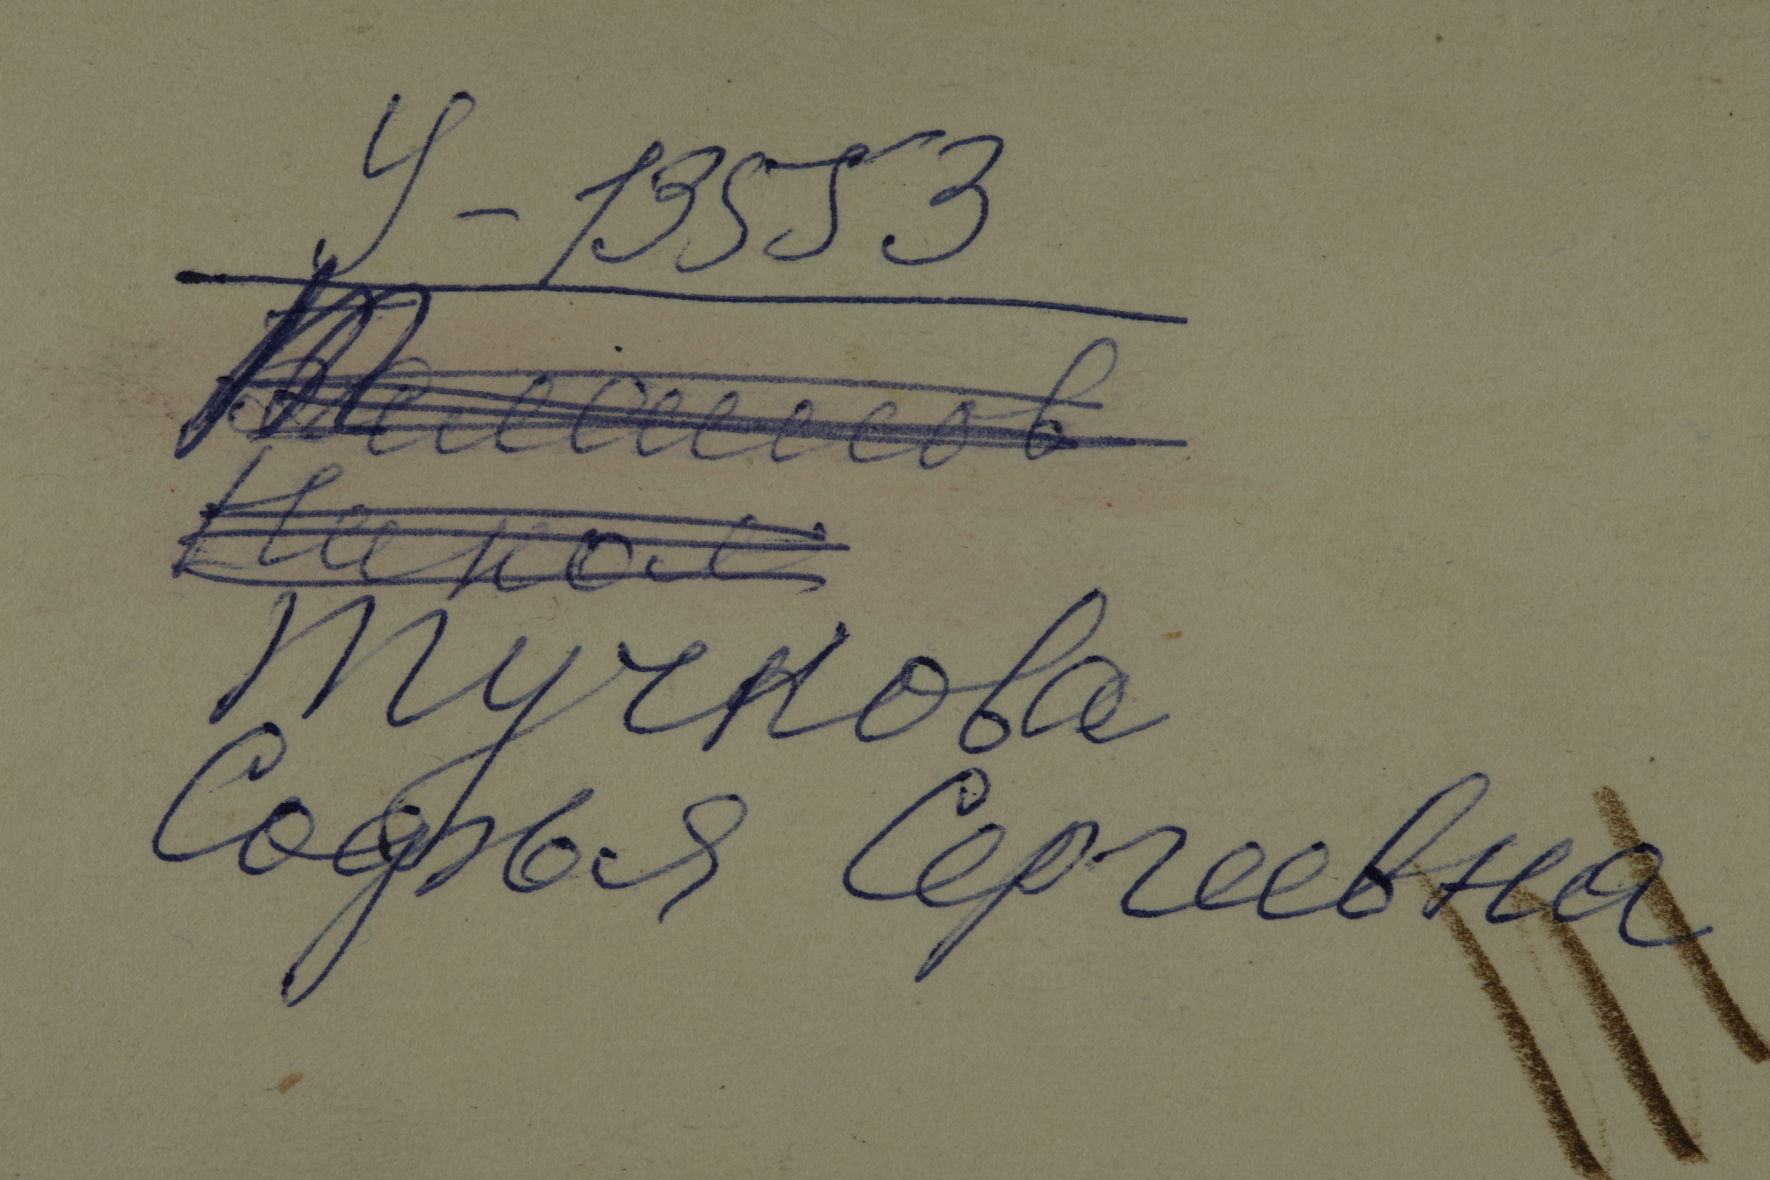 У-13553
Тучкова
Софья Сергеевна